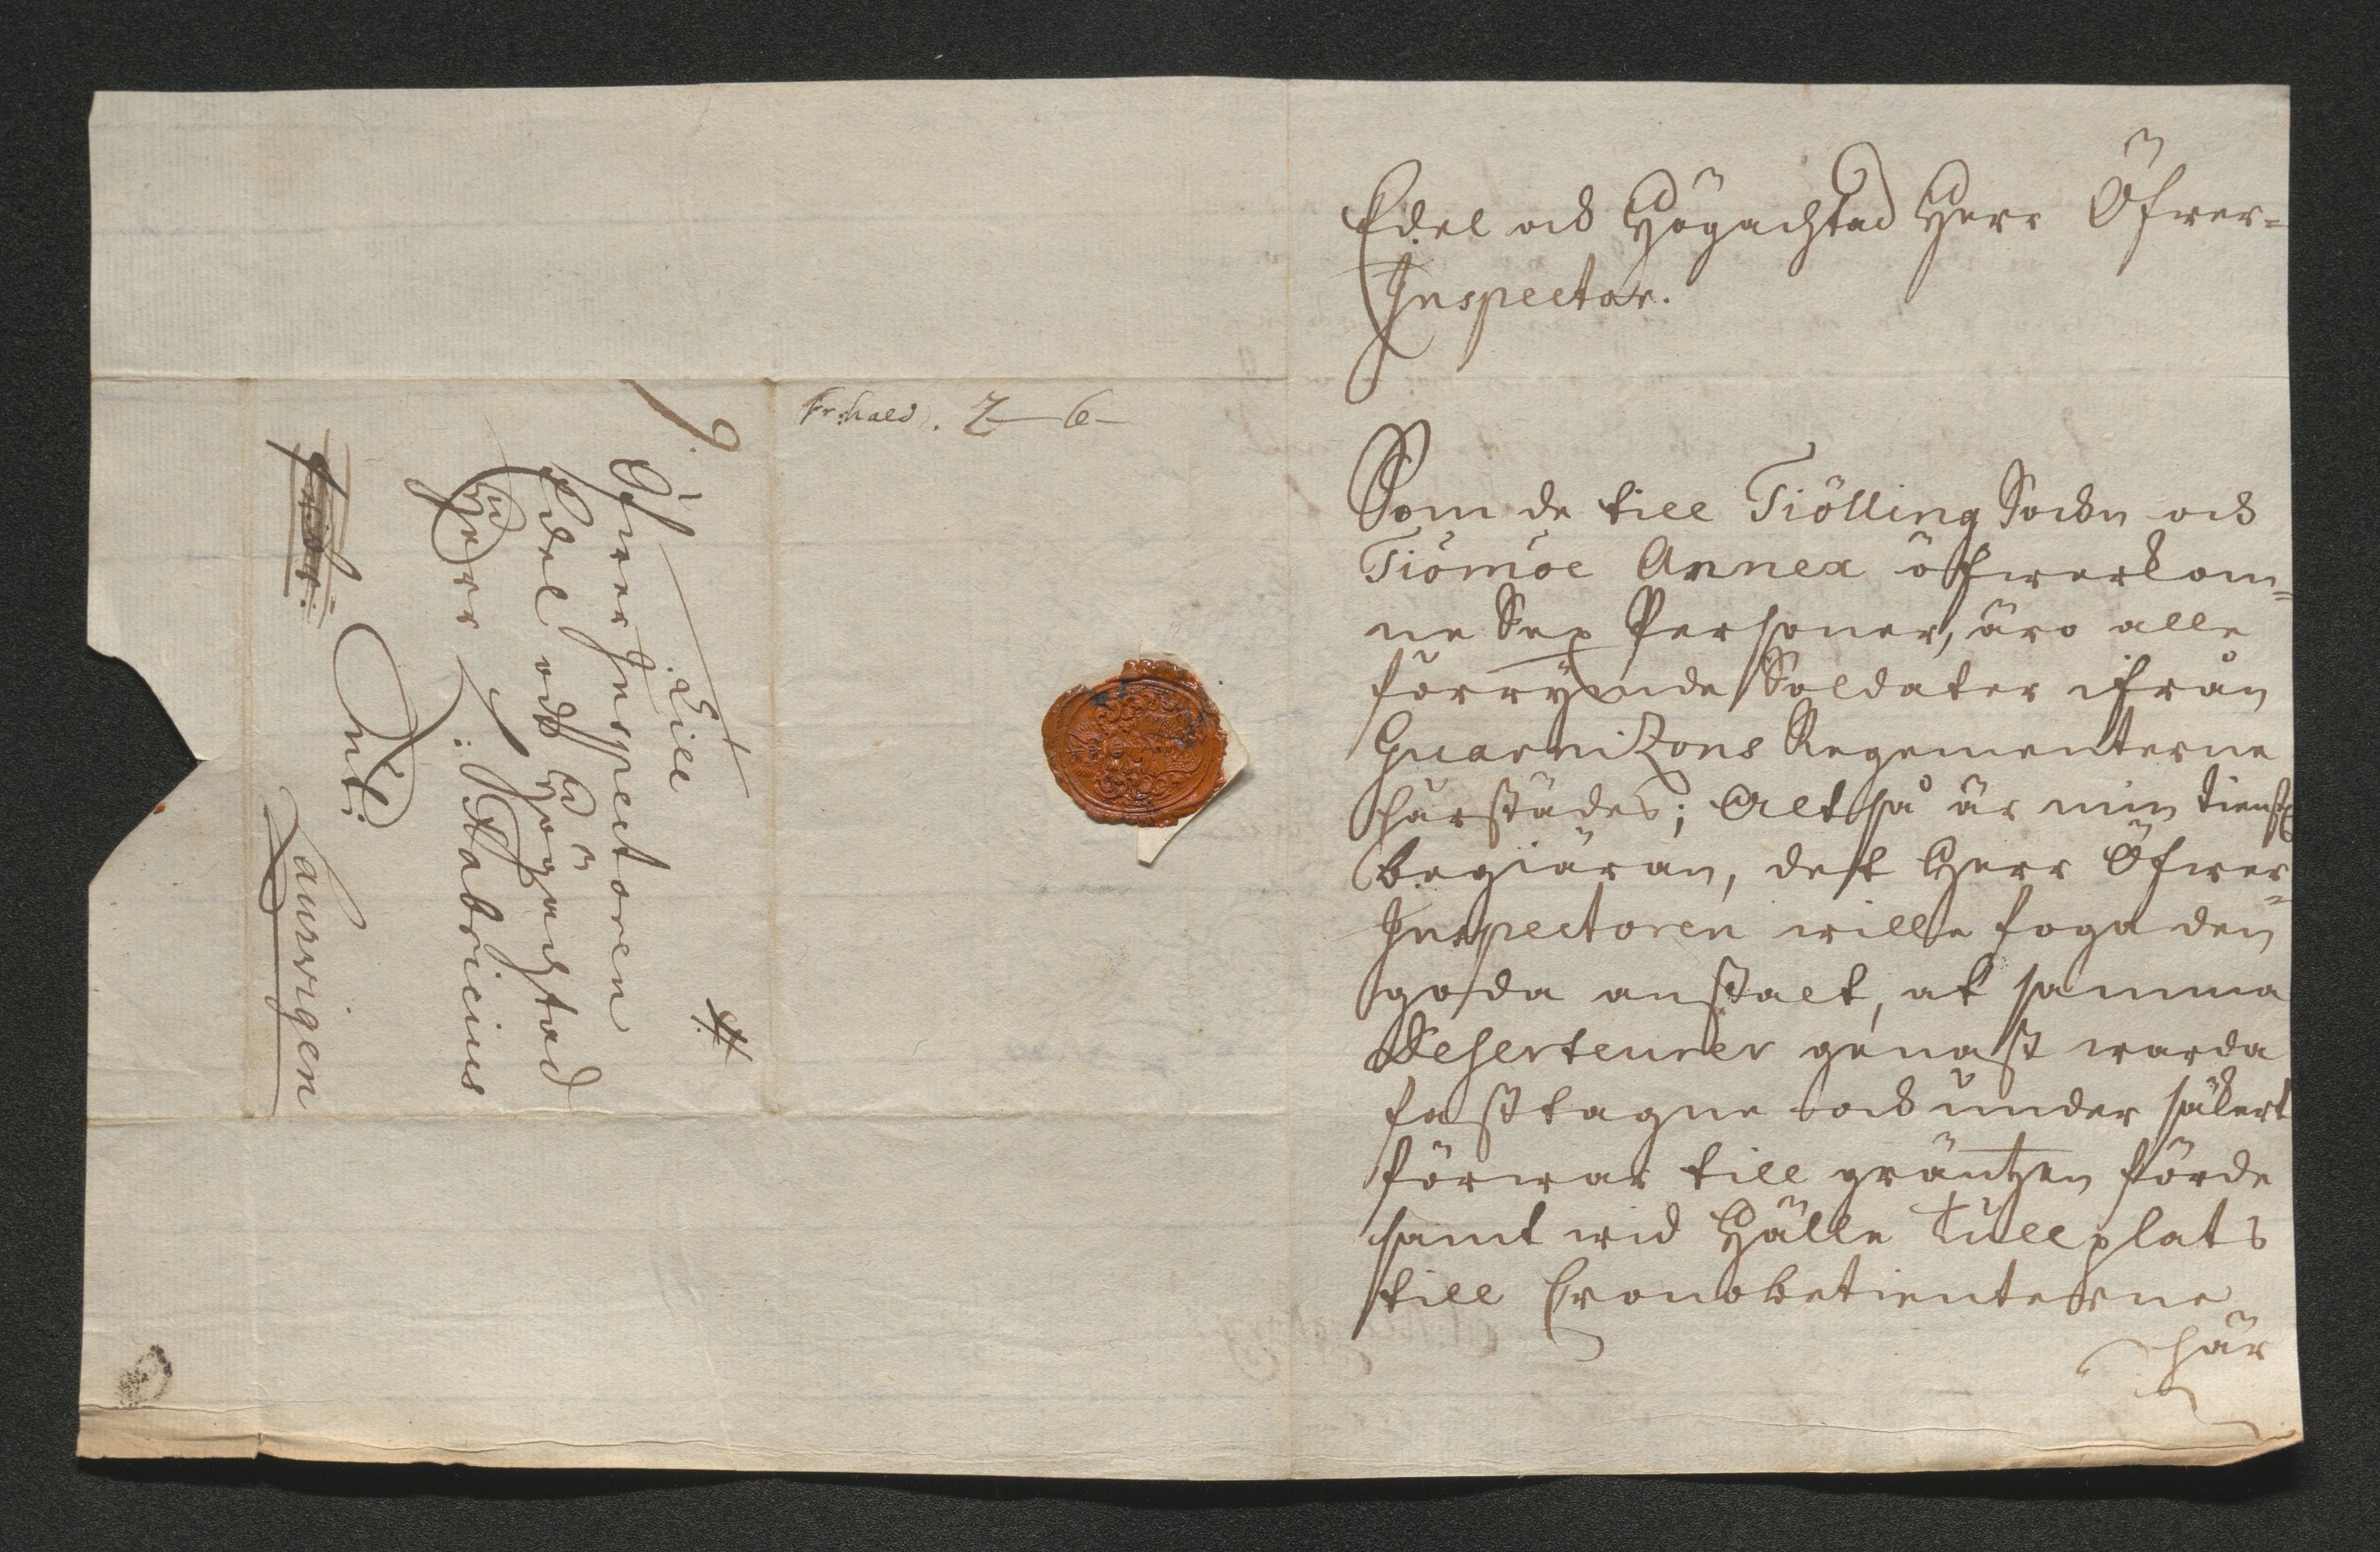 Fr:hald. 2 — 6 —
Till
Öfwer Inspectoren
Edel och Högachtad
Herr J: Fabricius
uti
Laurwigen
Edel och Högachtad Herr Öfwer=
Inspector.
Som de till Tiölling Sochn och
Tiömöe Annex öfwerkom=
ne Sex Personer, äro alle
förrymde Soldater ifrån
Guarnizons Regementerne
härstädes; Altså är min tienstl
begiäran, det Herr Öfwer=
Inspectoren wille foga den
goda anstalt, at samma
Deserteurer genast warda
fasttagne och under säkert
förwar till gräntzen förde
samt wid Hälle Tullplats
till Cronobetienterne
här